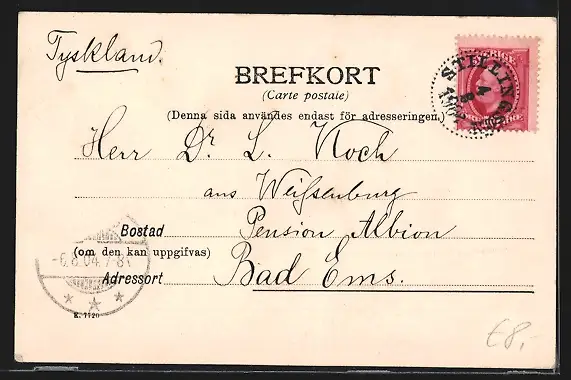 Tyskland.
BREFKORT
(Carte postale)
(Denna sida användes endast för adresseringen.)
STILLING
4
8
Herr Dr. L. Koch
aus Weißenburg
Bostad Pension Albion
(om den kan uppgifvas)
Adressort Bad Ems.
-6.8.04. 7-8
K. 7720
€8,-